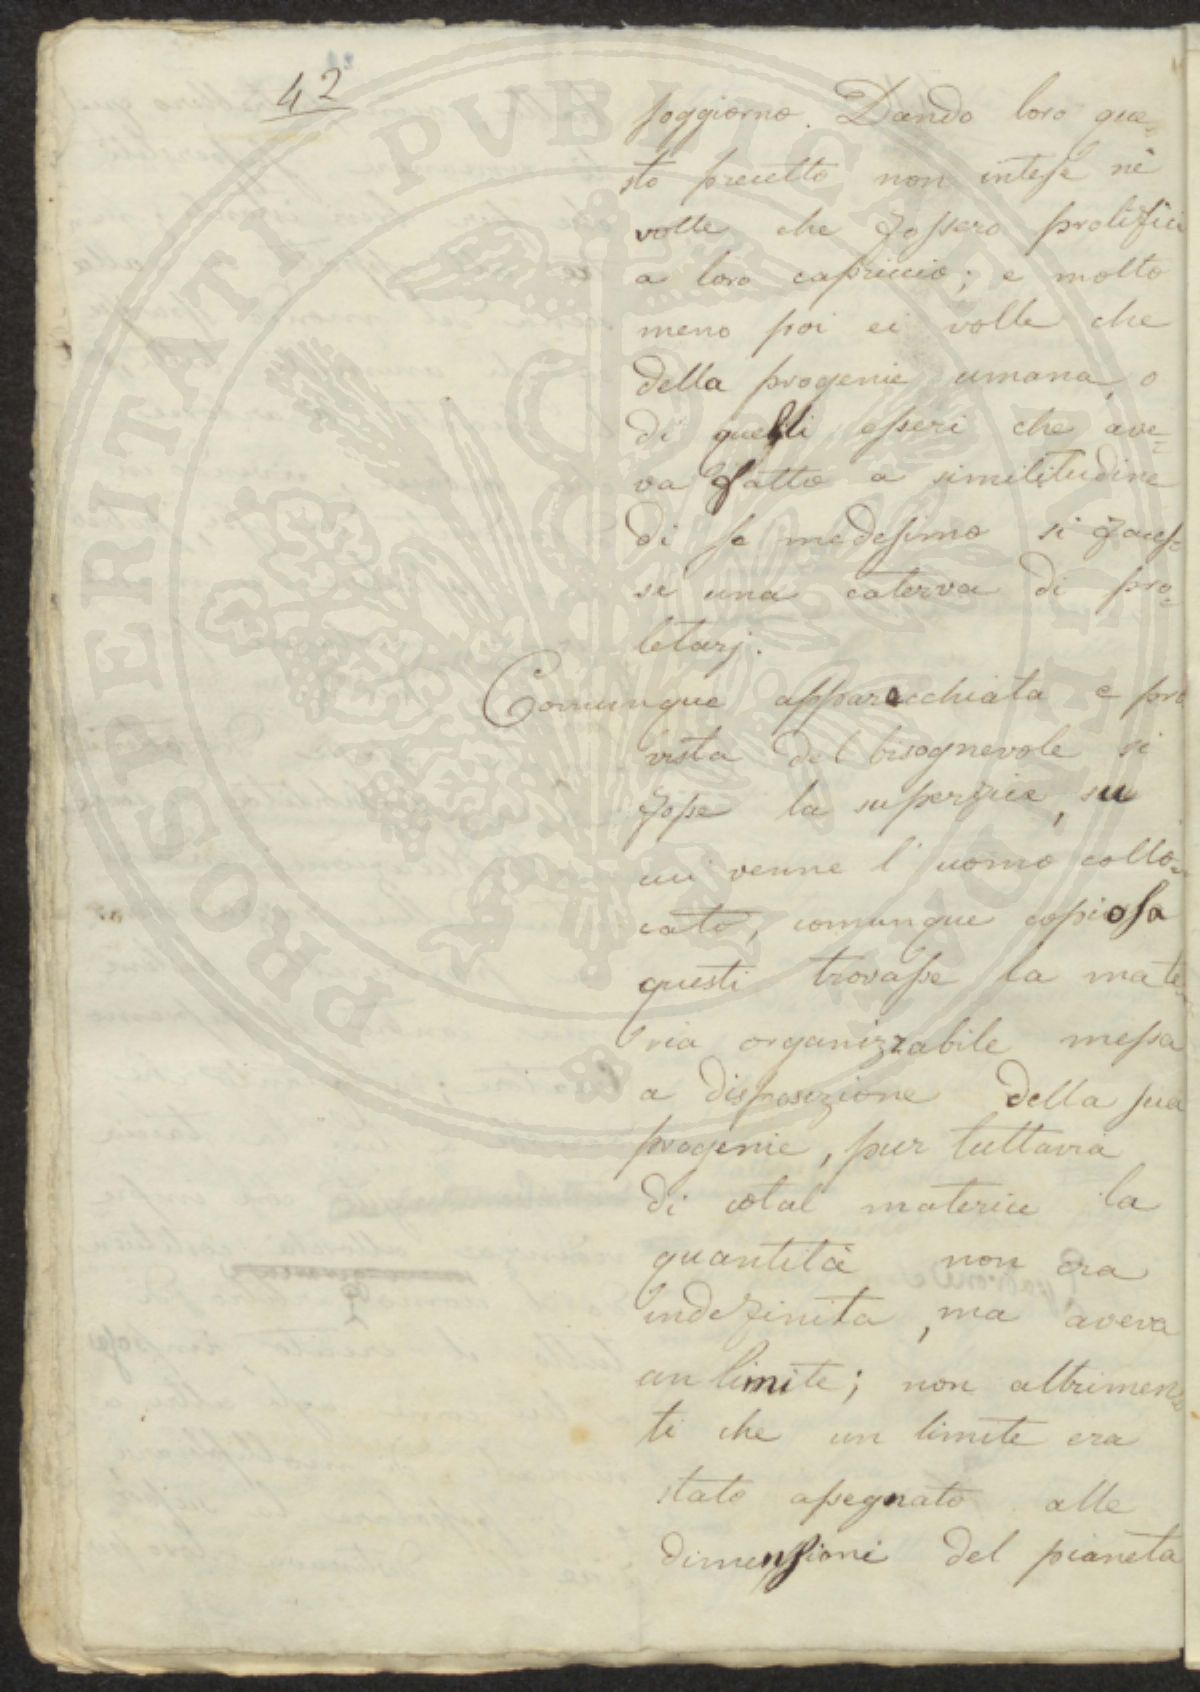 42
soggiorno. Dando loro que=
sto precetto non intese nè
volle che fossero prolifici
a loro capriccio; e molto
meno poi ei volle che
della progenie umana, o
di quelli esseri che ave=
va fatto a similitudine
di se medesimo si faces=
se una caterva di pro=
letarj.
Comunque apparecchiata e pro
vista del bisognevole si
fosse la superfice, su
cui venne l'uomo collo=
cato, comunque copiosa
questi trovasse la mate=
ria organizzabile messa
a disposizione della sua
progenie, pur tuttavia
di cotal materia la
quantità non era
indefinita, ma aveva
un limite; non altrimen=
ti che un limite era
stato assegnato alle
dimensioni del pianeta
PROSPERITATI PUBLICAE